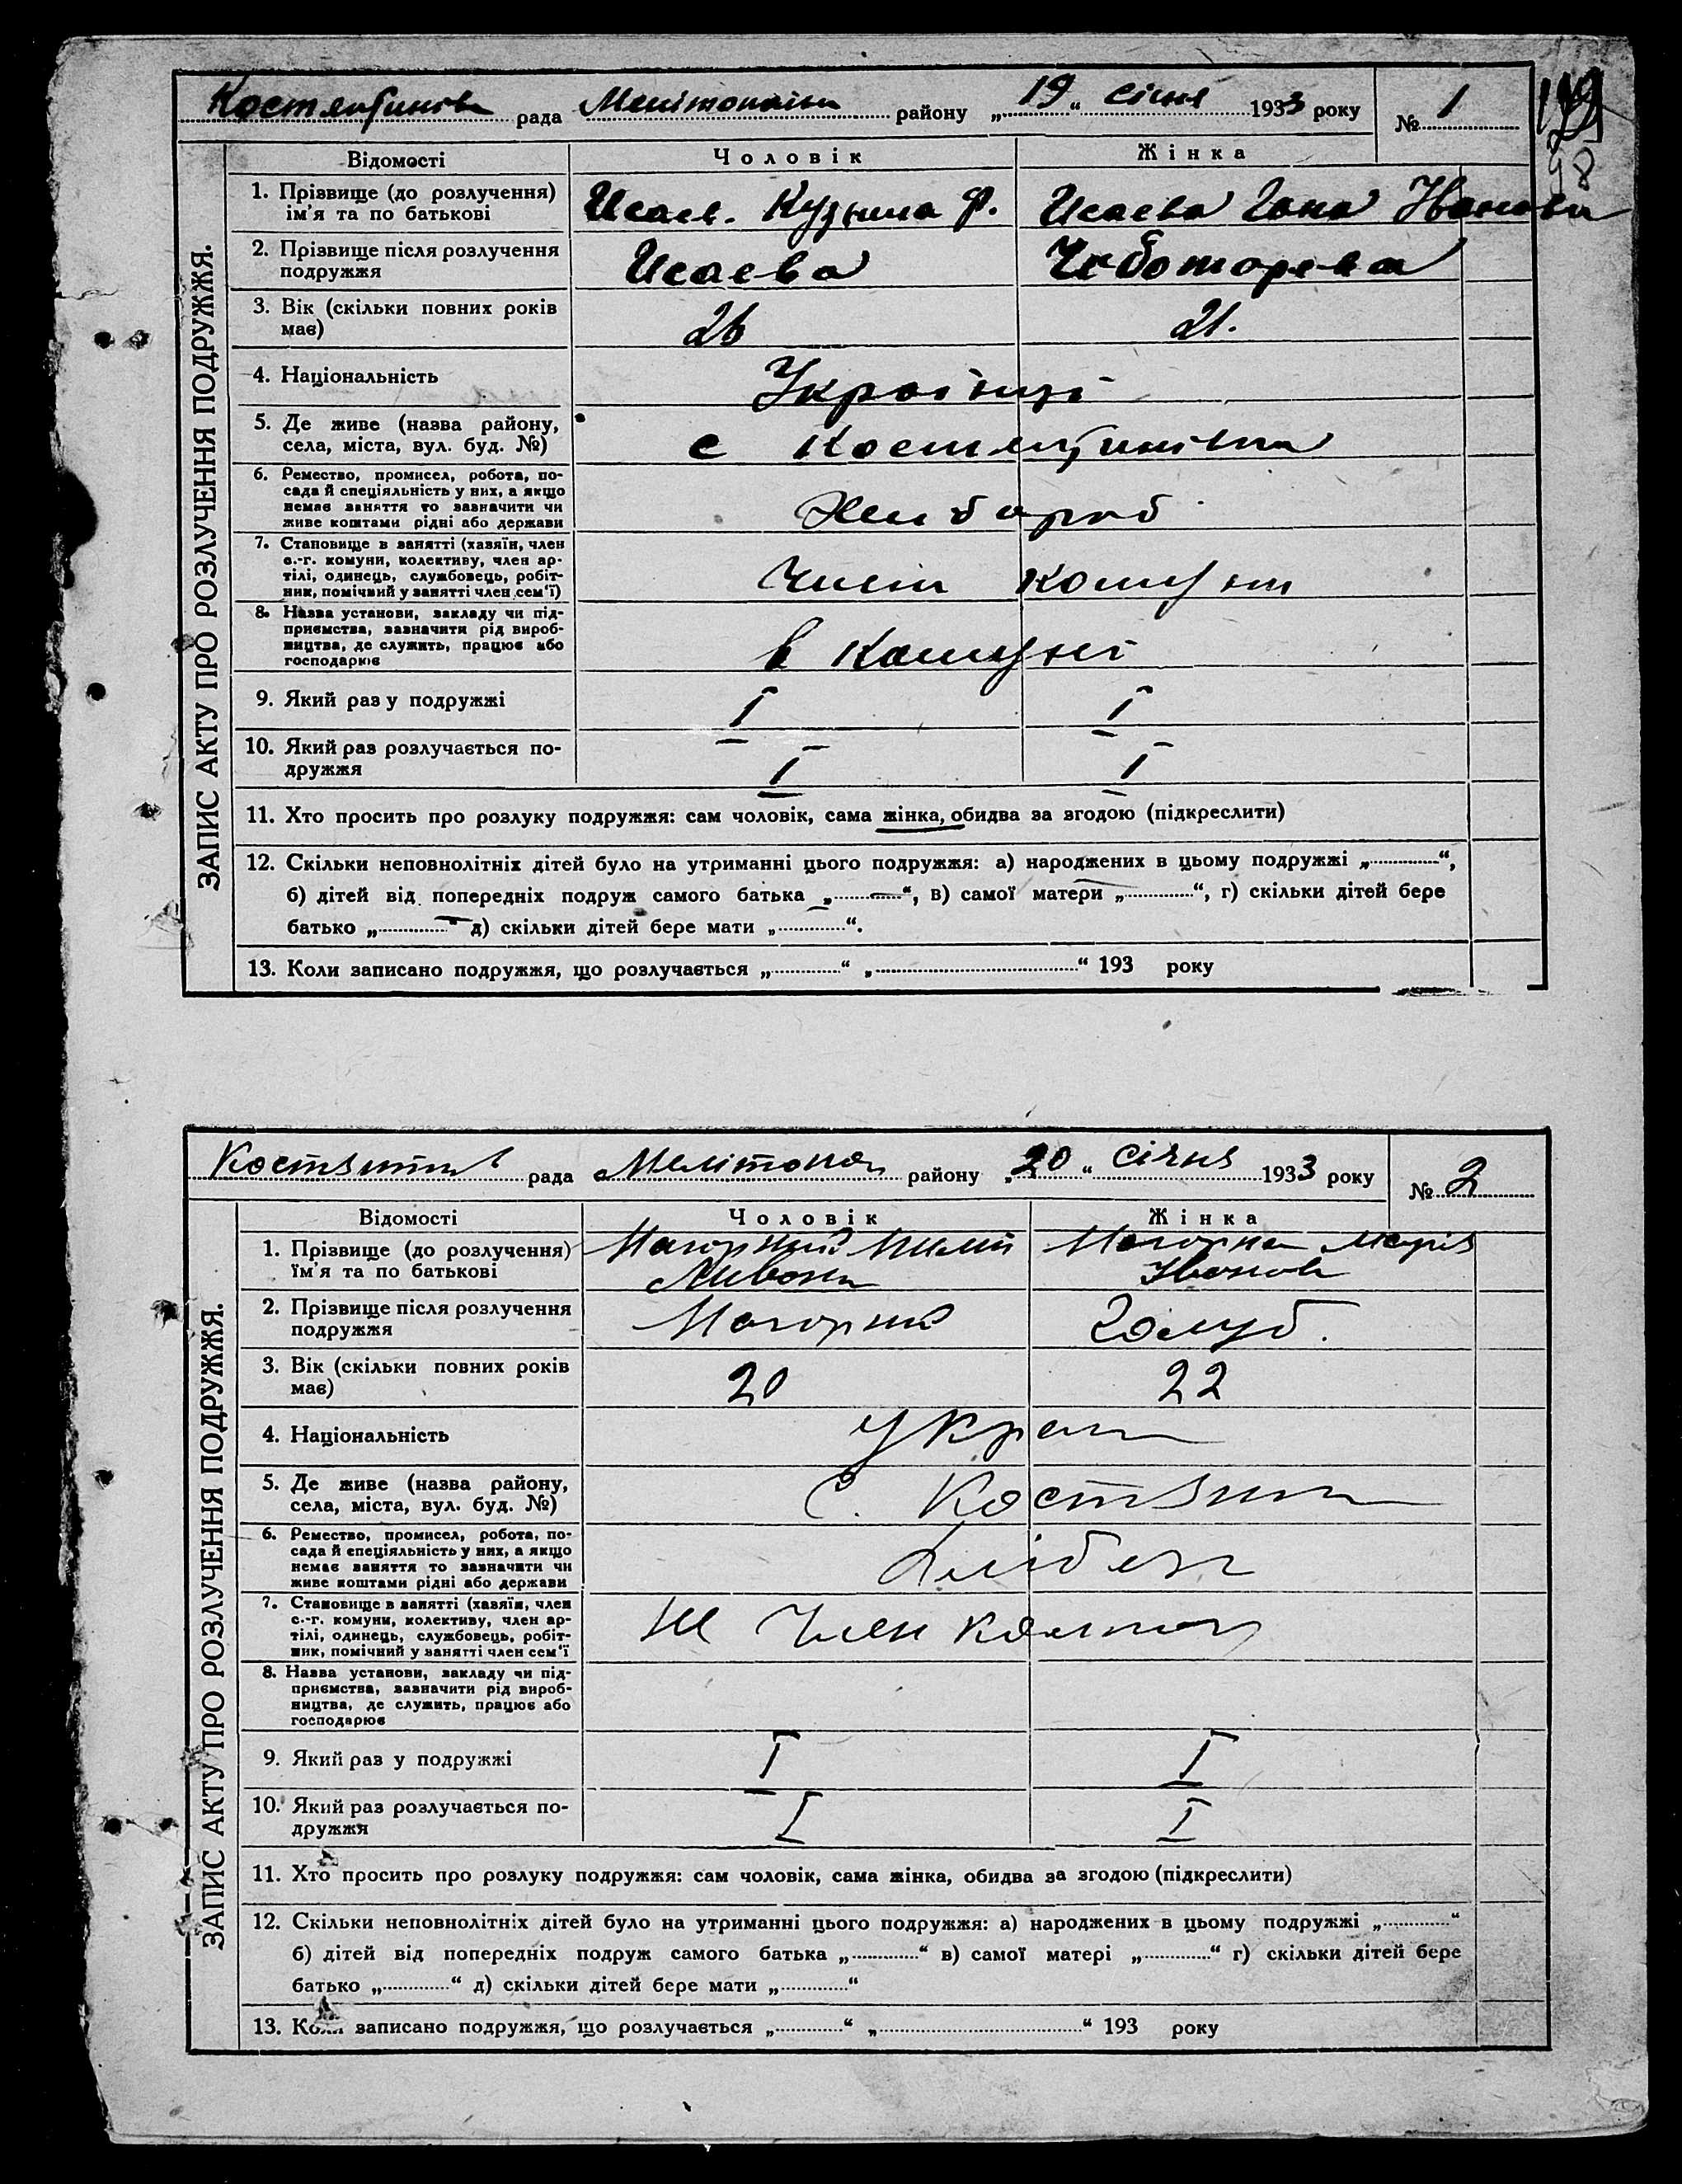 Мелітопольськ району „19“ січня 1933 року № 1
рада
98
ЗАПИС АКТУ ПРО РОЗЛУЧЕННЯ ПОДРУЖЖЯ.
Відомості Чоловік Жінка
1. Прізвище (до розлучення) ім'я та по батькові Исаев. Кузьма Ф. Исаева Іванови
2. Прізвище після розлучення подружжя Исаева Чеботорева
3. Вік (скільки повних років має) 26 21.
4. Національність Українці
5. Де живе (назва району, села, міста, вул. буд. №) с
6. Ремество, промисел, робота, посада й спеціяльність у них, а якщо немає заняття то зазначити чи живе коштами рідні або держави Хлибороб
7. Становище в занятті (хазяїн, член с.-г. комуни, колективу, член артілі, одинець, службовець, робітник, помічний у занятті член сем'ї) Члени комуни
8. Назва установи, закладу чи підприємства, зазначити рід виробництва, де служить, працює або господарює в Комуні
9. Який раз у подружжі I I
10. Який раз розлучається подружжя I I
11. Хто просить про розлуку подружжя: сам чоловік, сама жінка, обидва за згодою (підкреслити)
12. Скільки неповнолітніх дітей було на утриманні цього подружжя: а) народжених в цьому подружжі „......“,
б) дітей від попередніх подруж самого батька „...—...“, в) самої матери „......“, г) скільки дітей бере
батько „......“ д) скільки дітей бере мати „......“.
13. Коли записано подружжя, що розлучається „......“ „......“ 193 року
рада Мелітопол району „20“ січня 1933 року № 2
ЗАПИС АКТУ ПРО РОЗЛУЧЕННЯ ПОДРУЖЖЯ.
Відомості Чоловік Жінка
1. Прізвище (до розлучення) їм'я та по батькові Нагорний Нагорна Марія
Іванов
2. Прізвище після розлучення подружжя Нагорний Голуб.
3. Вік (скільки повних років має) 20 22
4. Національність Украин
5. Де живе (назва району, села, міста, вул. буд. №) с.
6. Ремество, промисел, робота, посада й спеціяльність у них, а якщо немає заняття то зазначити чи живе коштами рідні або держави
7. Становище в занятті (хазяїн, член с.-г. комуни, колективу, член артілі, одинець, службовець, робітник, помічний у занятті член сем'ї Член
8. Назва установи, закладу чи підприємства, зазначити рід виробництва, де служить, працює або господарює
9. Який раз у подружжі I I
10. Який раз розлучається подружжя I I
11. Хто просить про розлуку подружжя: сам чоловік, сама жінка, обидва за згодою (підкреслити)
12. Скільки неповнолітніх дітей було на утриманні цього подружжя: а) народжених в цьому подружжі „......“
б) дітей від попередніх подруж самого батька „......“ в) самої матері „......“ г) скільки дітей бере
батько „......“ д) скільки дітей бере мати „......“
13. Коли записано подружжя, що розлучається „......“ „......“ 193 року